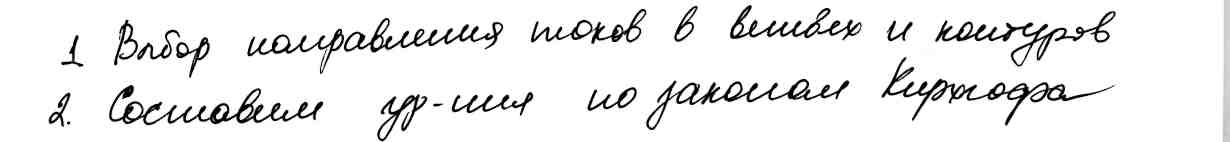 1 Выбор направления токов в ветвях и контуров
2. Составим ур-ния по законам Кирхгофа